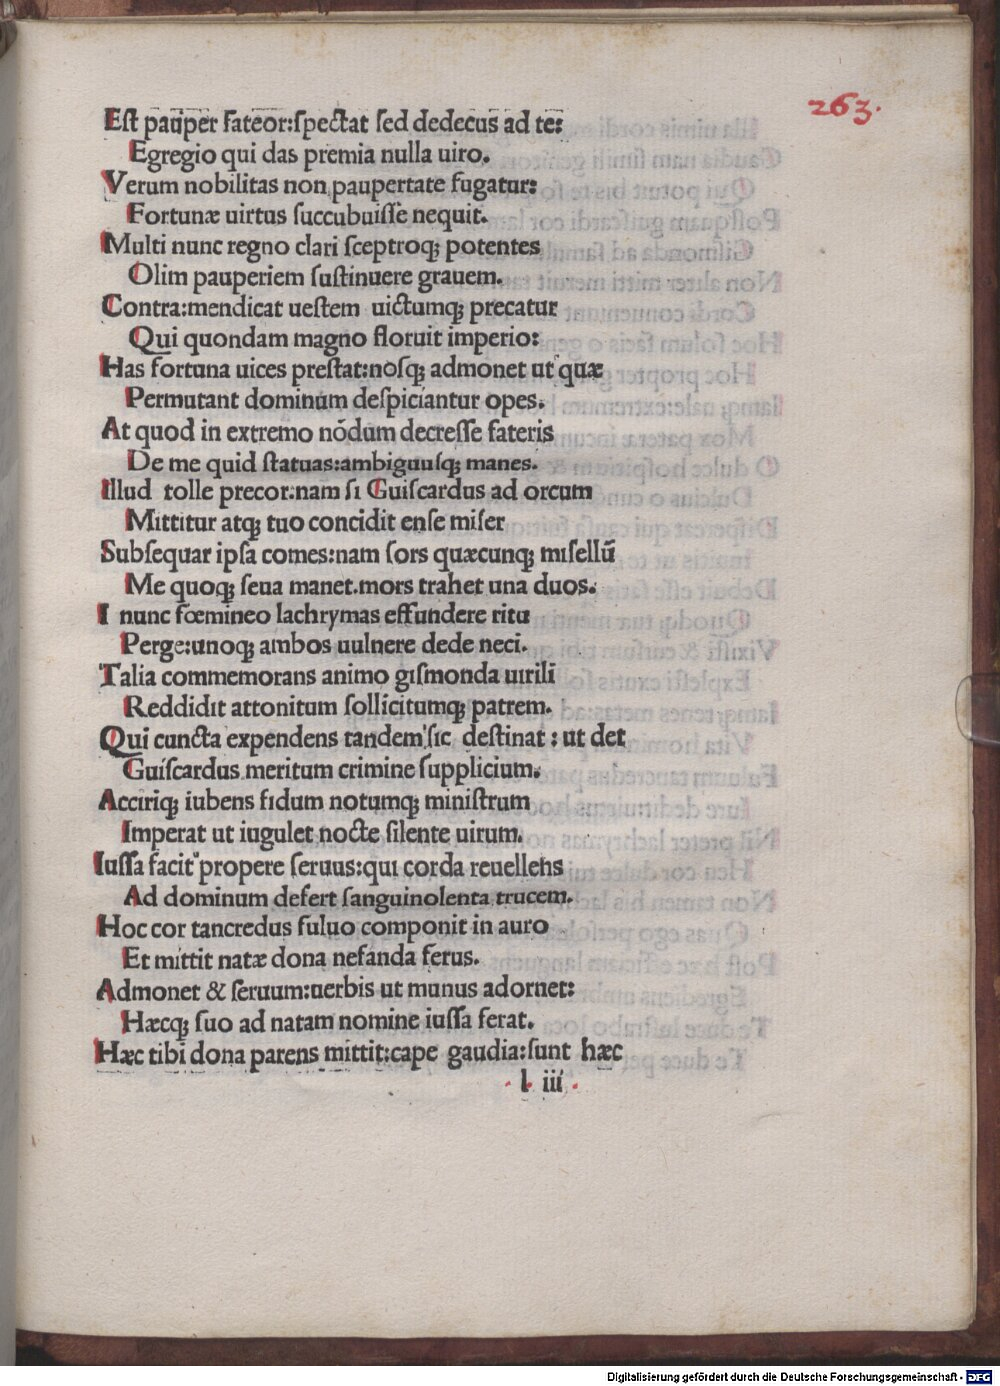 263.
Est pauper fateor:spectat sed dedecus ad te:
Egregio qui das premia nulla uiro.
Verum nobilitas non paupertate fugatur:
Fortunæ uirtus succubuisse nequit.
Multi nunc regno clari sceptroq; potentes
Olim pauperiem sustinuere grauem.
Contra:mendicat uestem uictumq; precatur
Qui quondam magno floruit imperio:
Has fortuna uices prestat:nosq; admonet ut quæ
Permutant dominum despiciantur opes.
At quod in extremo nōdum decresse fateris
De me quid statuas:ambiguusq; manes.
Illud tolle precor:nam si Guiscardus ad orcum
Mittitur atq; tuo concidit ense miser
Subsequar ipsa comes:nam sors quæcunq; misellū
Me quoq; seua manet.mors trahet una duos.
I nunc fœmineo lachrymas effundere ritu
Perge:unoq; ambos uulnere dede neci.
Talia commemorans animo gismonda uirili
Reddidit attonitum sollicitumq; patrem.
Qui cuncta expendens tandem sic destinat : ut det
Guiscardus meritum crimine supplicium.
Acciriq; iubens fidum notumq; ministrum
Imperat ut iugulet nocte silente uirum.
Iussa facit propere seruus:qui corda reuellens
Ad dominum defert sanguinolenta trucem.
Hoc cor tancredus fuluo componit in auro
Et mittit natæ dona nefanda ferus.
Admonet & seruum:uerbis ut munus adornet:
Hæcq; suo ad natam nomine iussa ferat.
Hæc tibi dona parens mittit:cape gaudia:sunt hæc
l iii
Digitalisierung gefördert durch die Deutsche Forschungsgemeinschaft - DFG